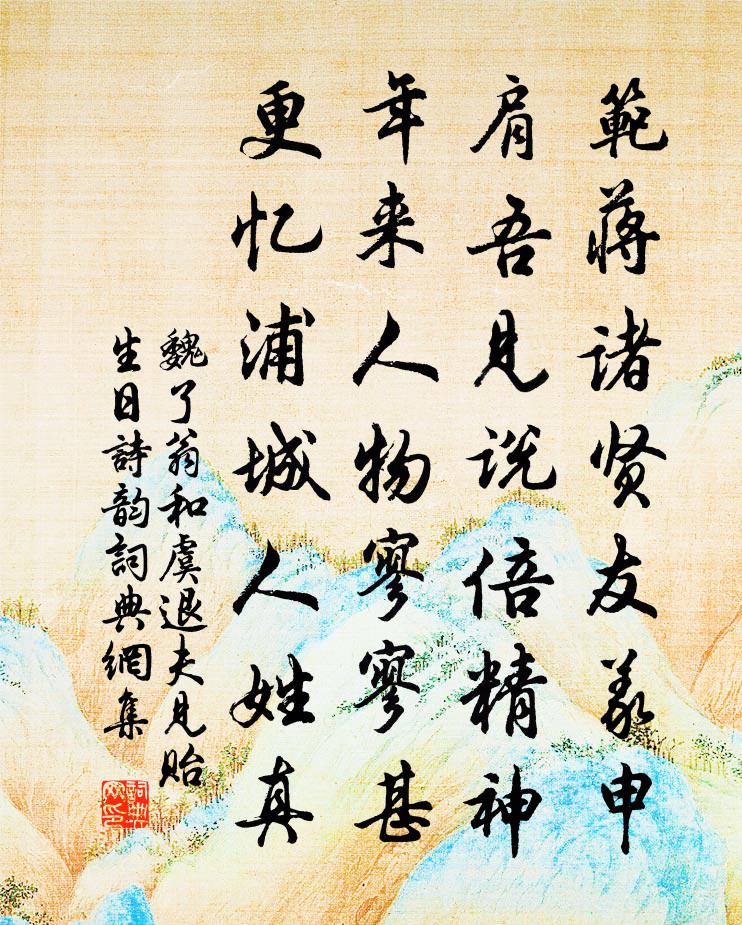 範蒋诸贤友義申
肩吾見说倍精神
年来人物寥寥甚
更忆浦城人姓真
魏了翁和虞退夫見貽
生日詩韵詞典網集